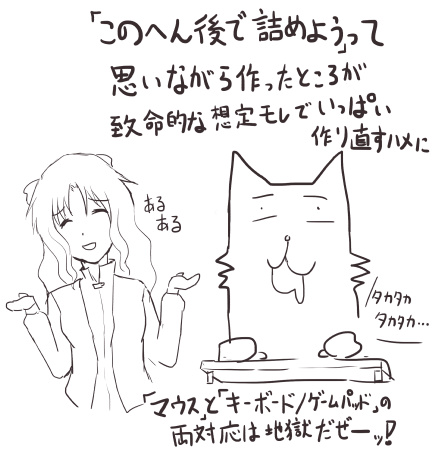 「このへん後で詰めよう」って
思いながら作ったところが
致命的な想定モレでいっぱい
作り直すハメに
ある
ある
タカタカ
タカタカ…
「マウス」と「キーボード/ゲームパッド」の
両対応は地獄だぜーッ!